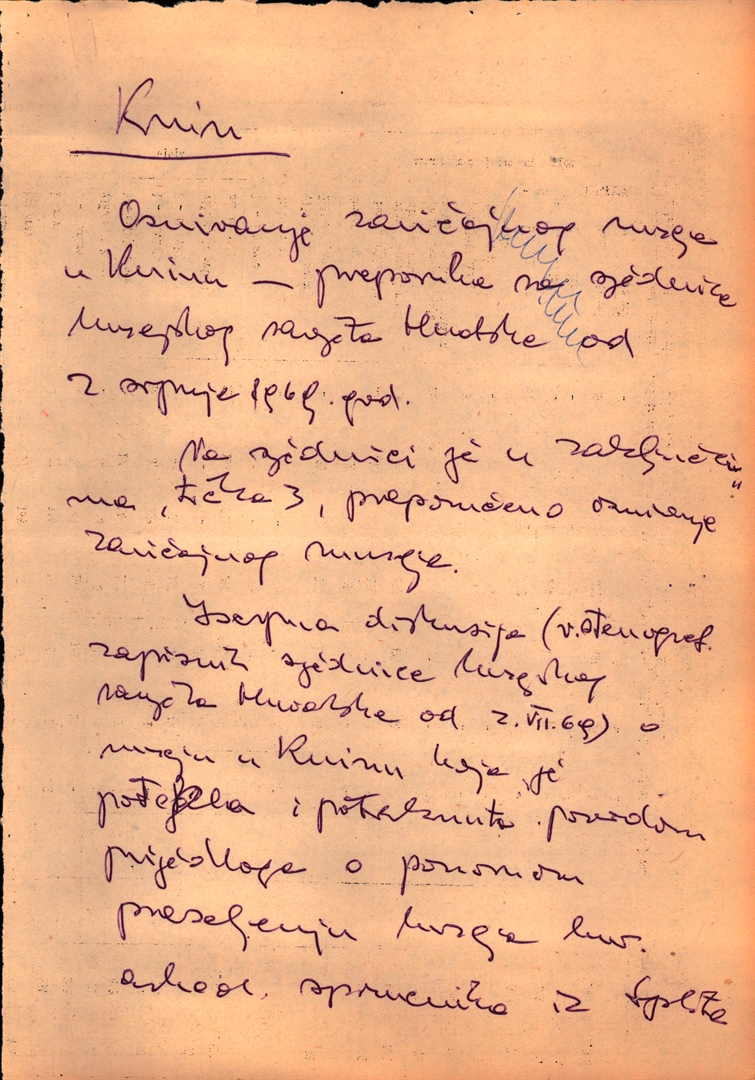 Knin
Osnivanje zavičajnog muzeja
u Kninu — preporuka sa sjednice
Muzejskog savjeta Hrvatske od
2. srpnja 1969. god.
Na sjednici je u zaključci-
ma, točka 3, preporučeno osnivanje
zavičajnog muzeja.
Iscrpna diskusija (v. stenograf.
zapisnik sjednice Muzejskog
savjeta Hrvatske od 2. VII. 69) o
muzeju u Kninu koja je
potekla i potaknuta povodom
prijedloga o ponovnom
preseljenju Muzeja hrv.
arheol. spomenika iz Splita